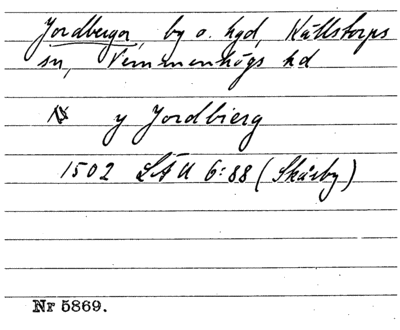 Jordberga, by o. hgd, Källstorps
sn, Vemmenhögs hd
y Jordbierg
1502 LÄU 6:88 (Skårby)
Nr 5869.